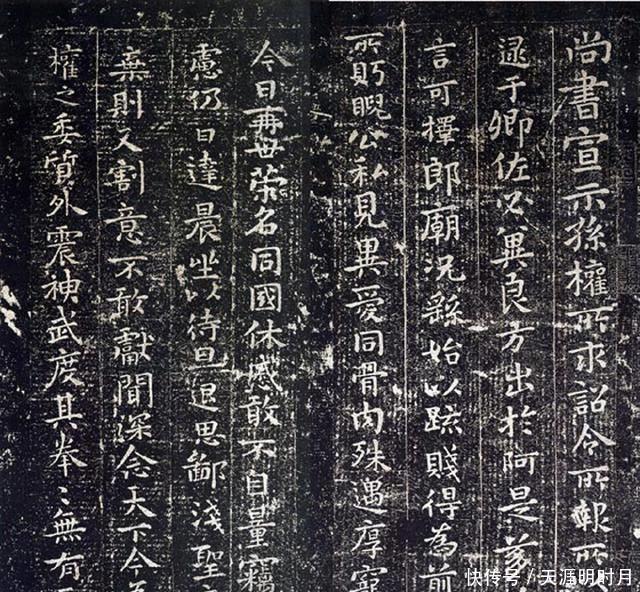 尚書宣示孫權所求詔令所報所
逮于卿佐必冀良方出於阿是芻
言可擇郎廟況繇始以疏賤得為前
所眄睨公私見異愛同骨肉殊遇厚寵
今日再世榮名同國休慼敢不自量竊
慮仍日達晨坐以待旦退思鄙淺聖
棄則又割意不敢獻聞深念天下今
權之委質外震神武度其拳〻無有
快传号/天涯明时月